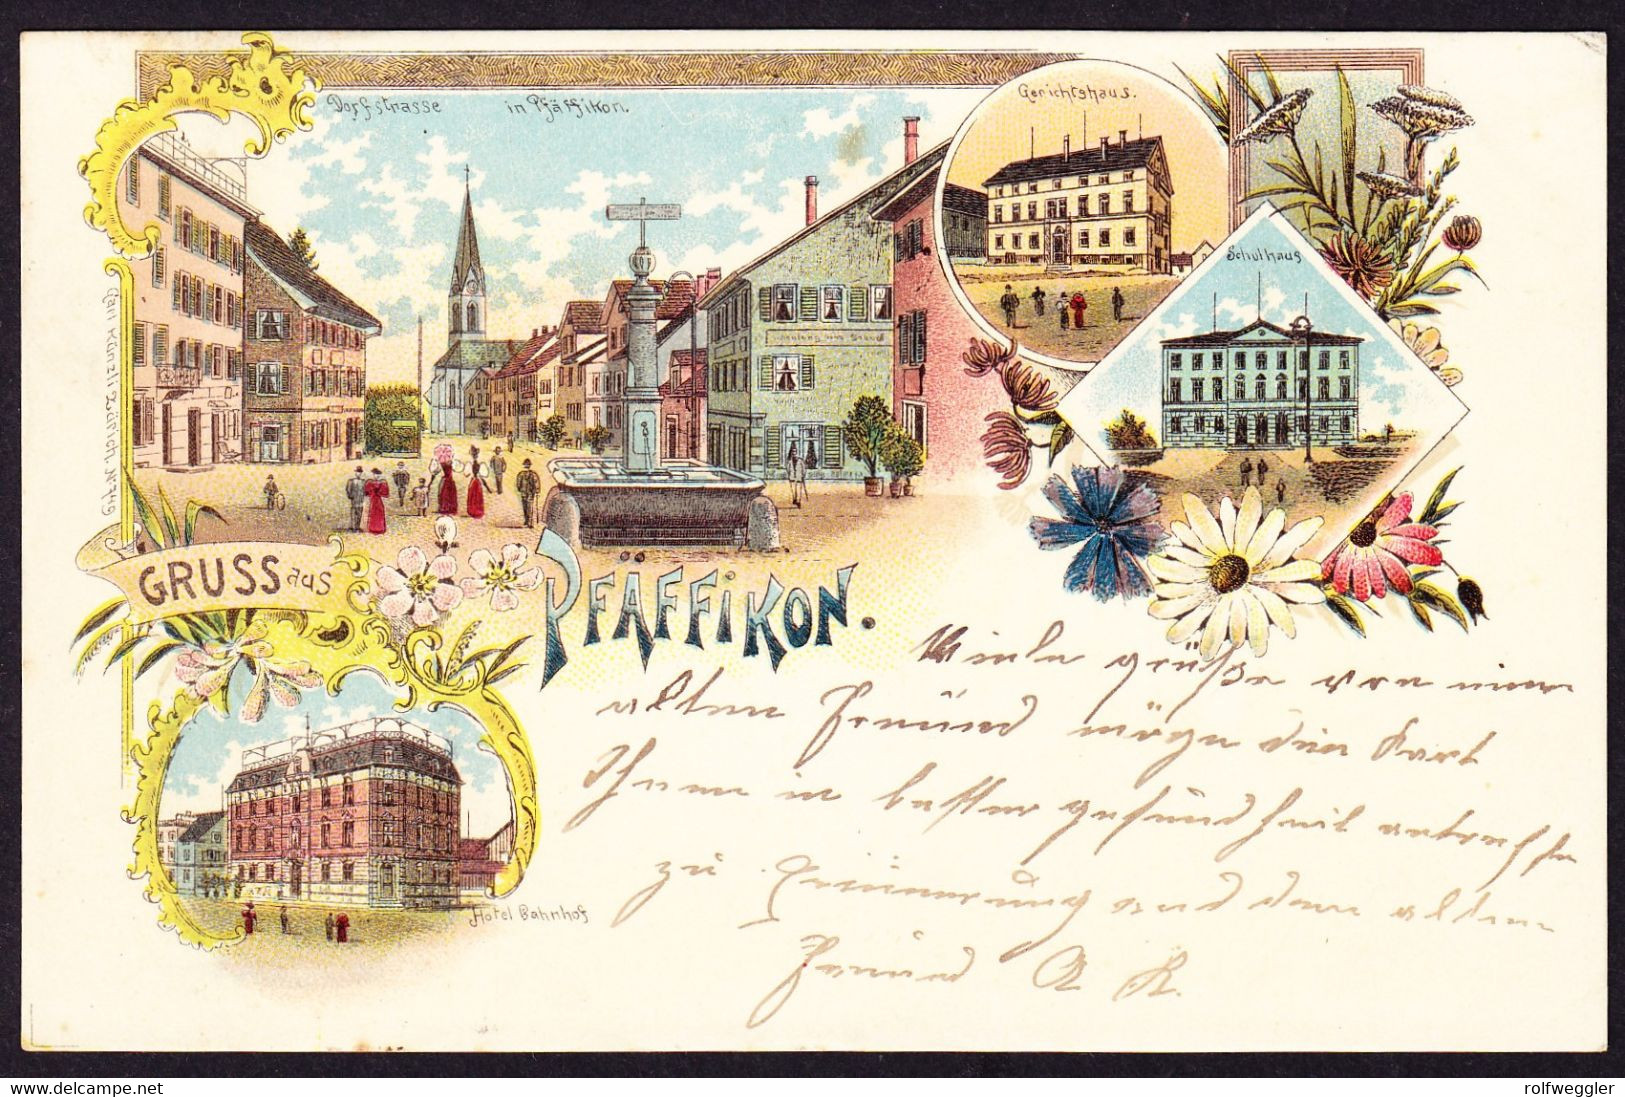 Dorfstrasse in Pfäffikon.
Gerichtshaus.
Schulhaus
Carl Künzli, Zürich, No 749
GRUSS aus
PFÄFFIKON.
Hotel Bahnhof
Viele grüße von einem
alten Freund möge die Kart
Ihnen in bester gesundheit antreffen
zu Erinnerung und dem alten
Freund A R.
www.delcampe.net
rolfweggler